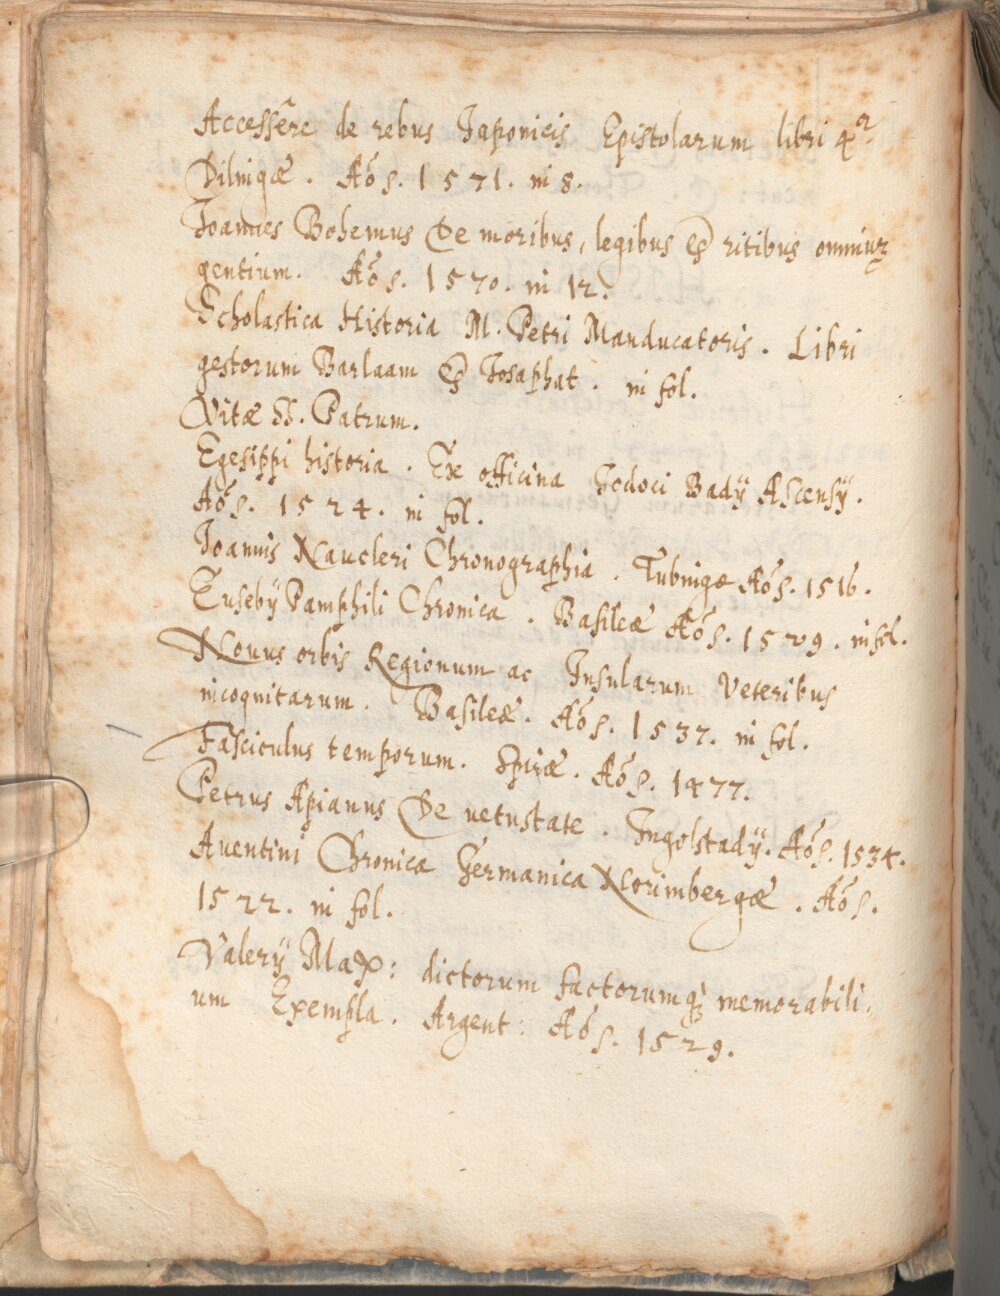 Accessêre de rebus Japonicis Epistolarum libri 4ʳ.
Dilingæ. Aōs. 1571. in 8.
Joannes Bohemus De moribus, legibus & ritibus omniuꝫ
gentium. Aōs. 1570. in 12.
Scholastica Historia M. Petri Manducatoris. Libri
gestorum Barlaam & Josaphat. in fol.
Vitæ SS. Patrum.
Egesippi historia. Ex officina Jodoci Badÿ Ascensÿ.
Aōs. 1524. in fol.
Joannis Naucleri Chronographia. Tubingæ Aōs. 1516.
Eusebÿ Pamphili Chronica. Basileæ Aōs. 1529. in fol.
Novus orbis Regionum ac Insularum Veteribus
incognitarum. Basileæ. Aōs. 1537. in fol.
Fasciculus temporum. Spiræ. Aōs. 1477.
Petrus Apianus De vetustate. Ingolstadÿ. Aōs. 1534.
Auentini Chronica Germanica Norimbergæ. Aōs.
1522. in fol.
Valerÿ Max: dictorum factorumq; memorabili,
um Exempla. Argent: Aōs. 1529.